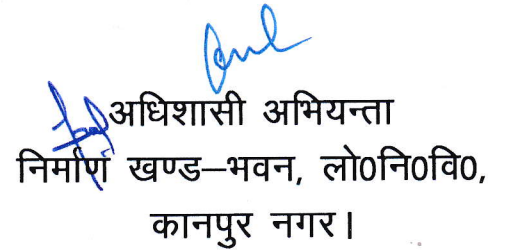 अधिशासी अभियन्ता
निर्माण खण्ड–भवन, लो0नि0वि0,
कानपुर नगर।